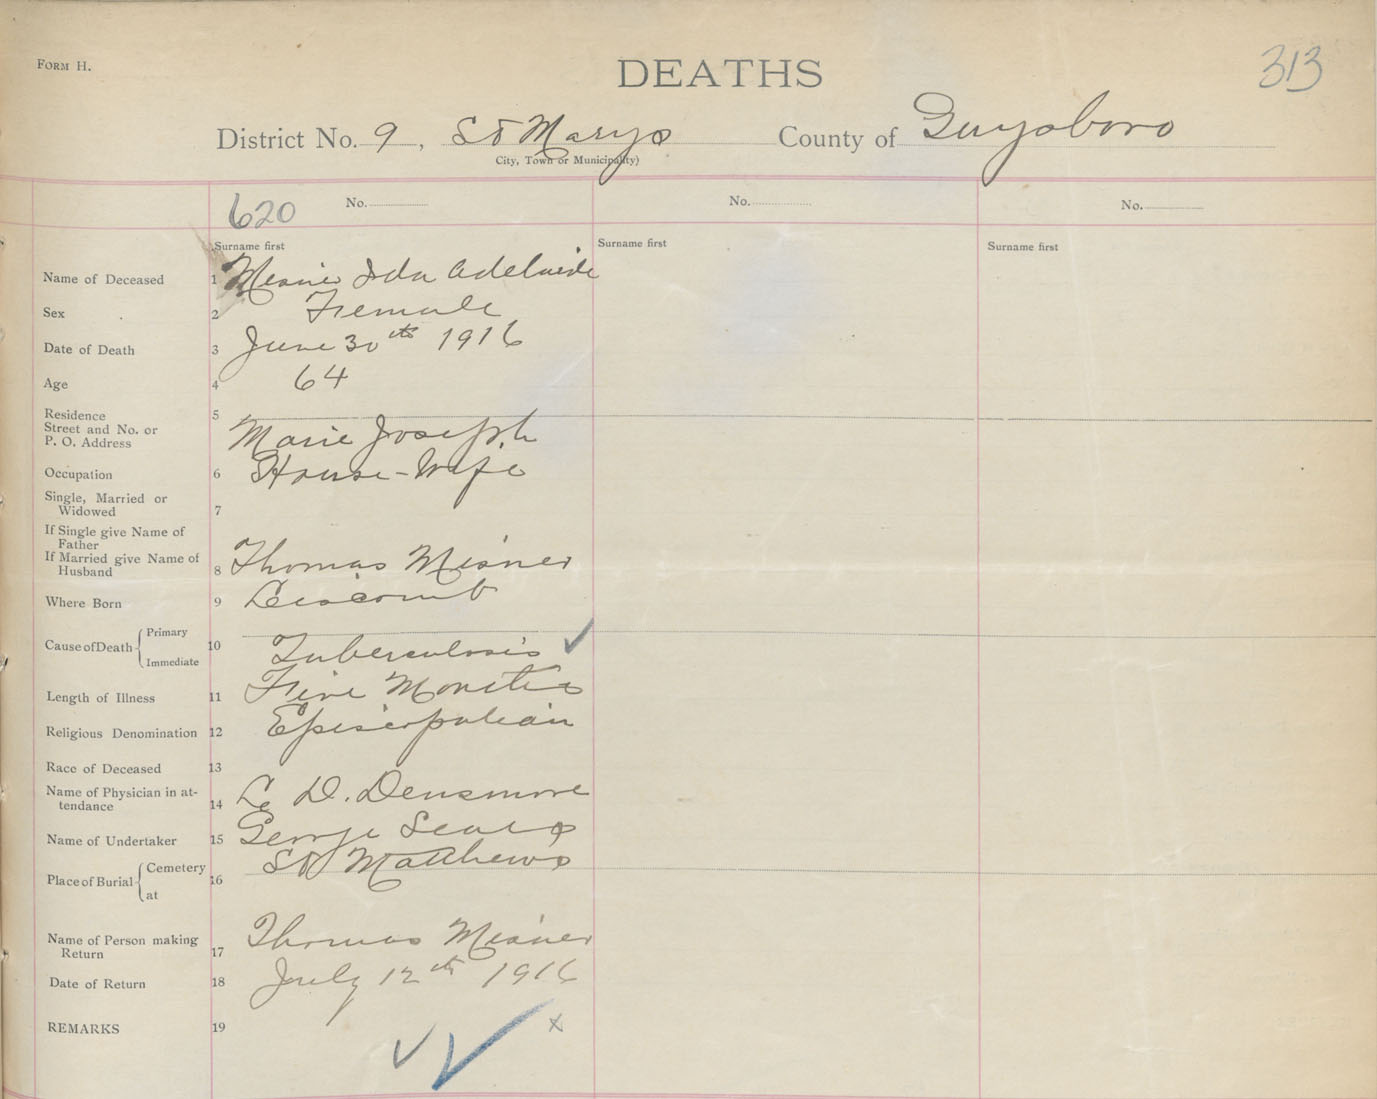 FORM H.
DEATHS
313
District No. 9, St Marys County of Guysboro
City, Town or Municipality)
620 No. No. No.
Surname first Surname first Surname first
Name of Deceased 1 Misner Ida Adelaide
Sex 2 Female
Date of Death 3 June 30th 1916
Age 4 64
Residence 5
Street and No. or
P. O. Address Marie Joseph
Occupation 6 House-Wife
Single, Married or
Widowed 7
If Single give Name of
Father
If Married give Name of
Husband 8 Thomas Misner
Where Born 9 Liscomb
Cause of Death Primary 10 Tuberculosis
Immediate
Length of Illness 11 Five Months
Religious Denomination 12 Episcopalian
Race of Deceased 13
Name of Physician in at-
tendance 14 D. Densmore
Name of Undertaker 15 George
Place of Burial Cemetery 16 St Matthews
at
Name of Person making
Return 17 Thomas Misner
Date of Return 18 July 12th 1916
REMARKS 19
x